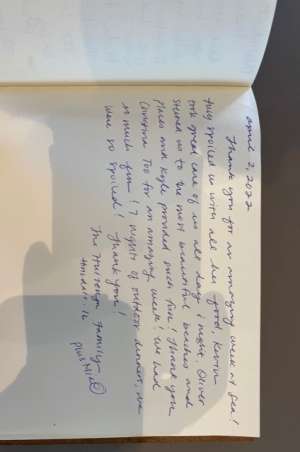 April 2, 2022
Thank you for an amazing week at sea!
fully spoiled us with all her food, Kristin
took great care of us all day & night. Oliver
steered us to the most beautiful beaches and
places and Kyle provided such fun! Thank you
Too for an amazing week! We had
so much fun! 7 nights of outdoor dinners, we
were so spoiled! Thank you!
The Family